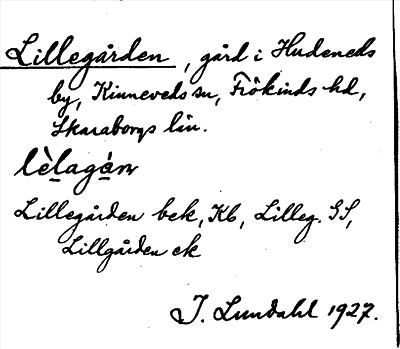 Lillegården, gård i Hudeneds
by, Kinneveds sn, Frökinds hd,
Skaraborgs län.
lèlagán
Lillegården bek, Kb, Lilleg. GS,
Lillgården ek
I. Lundahl 1927.